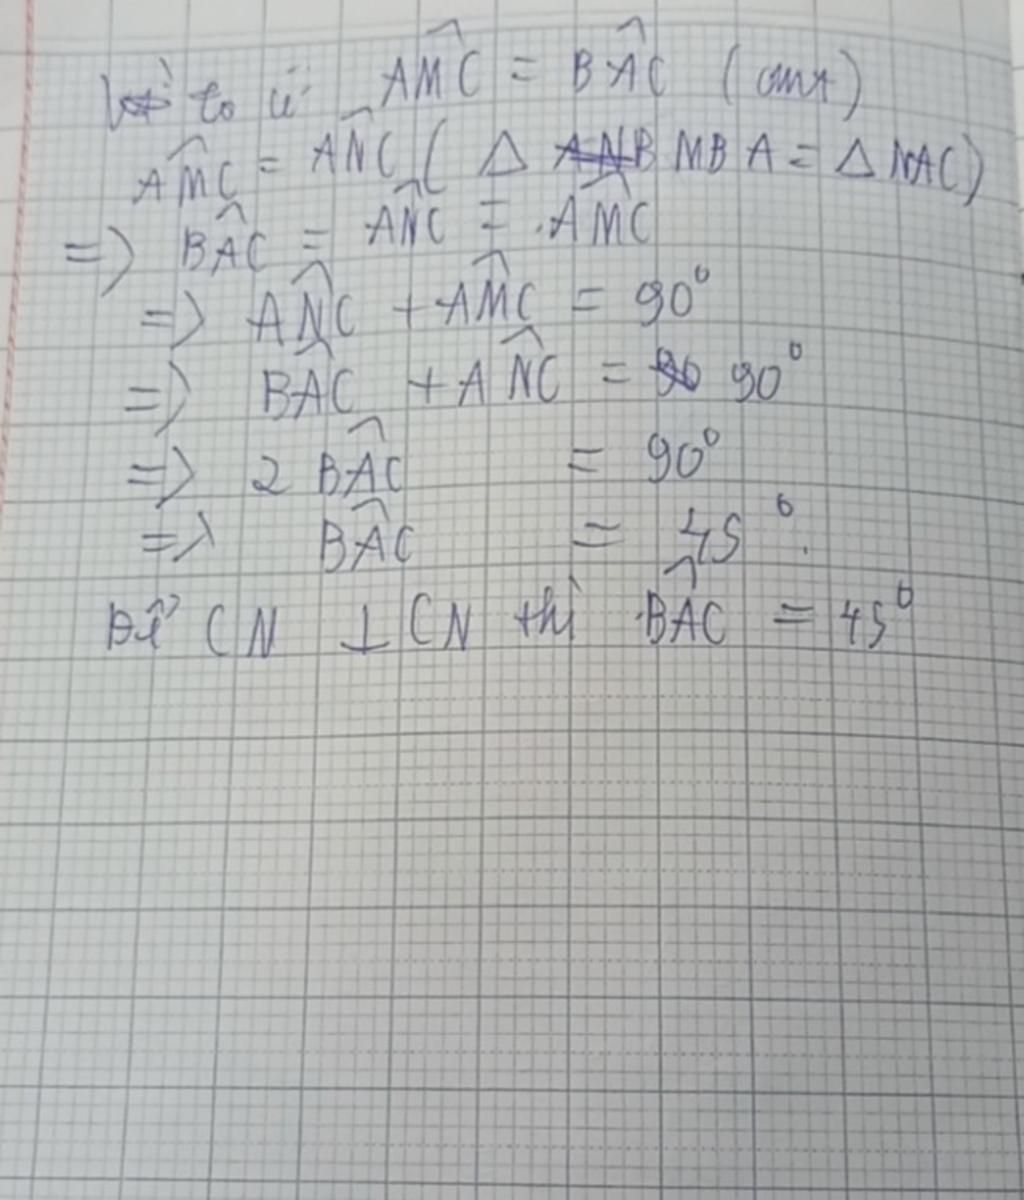 ta có $\widehat{AMC} = \widehat{BAC}$ (cmt)
$\widehat{AMC} = \widehat{ANC}$ ( Δ MBA = Δ NAC)
=> $\widehat{BAC} = \widehat{ANC} = \widehat{AMC}$
=> $\widehat{ANC} + \widehat{AMC} = 90°$
=> $\widehat{BAC} + \widehat{ANC} = 90°$
=> 2 $\widehat{BAC}$ = 90°
=> $\widehat{BAC}$ = 45°.
Để CN ⊥ CN thì $\widehat{BAC}$ = 45°